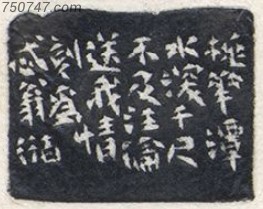 750747.com
桃華潭
水深千尺
不及汪倫
送我情
刻為
翁